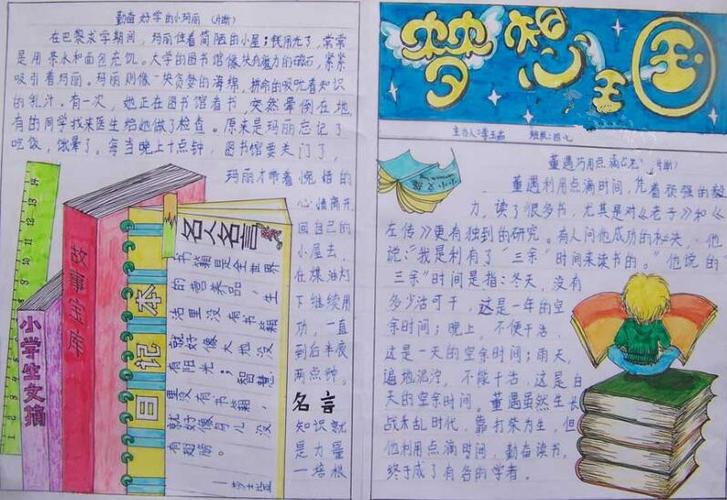 勤奋好学的小玛丽（片断）
在巴黎求学期间，玛丽住着简陋的小屋；钱用光了，常常
是用茶水和面包充饥。大学的图书馆像块有魔力的磁石，紧紧
吸引着玛丽。玛丽则像一块贪婪的海绵，拼命的吸吮着知识
的乳汁。有一次，她正在图书馆看书，突然晕倒在地，
有的同学找来医生给她做了检查。原来是玛丽忘记了
吃饭，饿晕了。每当晚上十点钟，图书馆要关门了，
玛丽才带着惋惜的
心情离开
回自己的
小屋去，
在煤油灯
下继续用
功，一直
到后半夜
两点钟。
名言
知识就
是力量
—培根
小学生文摘
故事宝库
日记本
名人名言
书籍是全世界
的营养品，生
活里没有书籍
就好像大地没
有阳光；智慧
里没有书籍，
就好像鸟儿没
有翅膀。
—莎士亚
梦想王国
主办人:李玉苗 班级:四七
董遇巧用点滴 片断）
董遇利用点滴时间，凭着顽强的毅
力，读了很多书，尤其是对《老子》和《
左传》更有独到的研究。有人问他成功的秘决，他
说:“我是利有了“三余”时间来读书的。”他说的“
三余”时间是指:冬天，没有
多少活可干，这是一年的空
余时间；晚上，不便干活，
这是一天的空余时间；雨天，
遍地泥泞，不能干活，这是白
天的空余时间。董遇虽然生长
战未乱时代，靠打柴为生，但
他利用点滴时间，勤奋读书，
终于成了有名的学者。